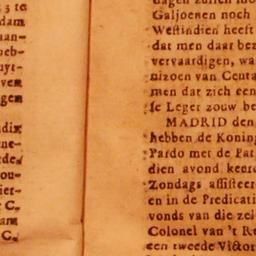 3 te
dam
aan-
eb-
uyt-
ven
gen
dix
ne-
de
ou-
ier-
C.
ant
C.
dagen zullen
Galjoenen noch
Westindien heeft
dat men daar bez
vervaardigen, wa
nizoen van Ceuta
men dat zich een
se Leger zouw be
MADRID den
hebben de Koning
Pardo met de Pat
dien avond keer
Zondags assisteer
en in de Predicati
vonds van die zel
Colonel van 't Re
een tweede Victor